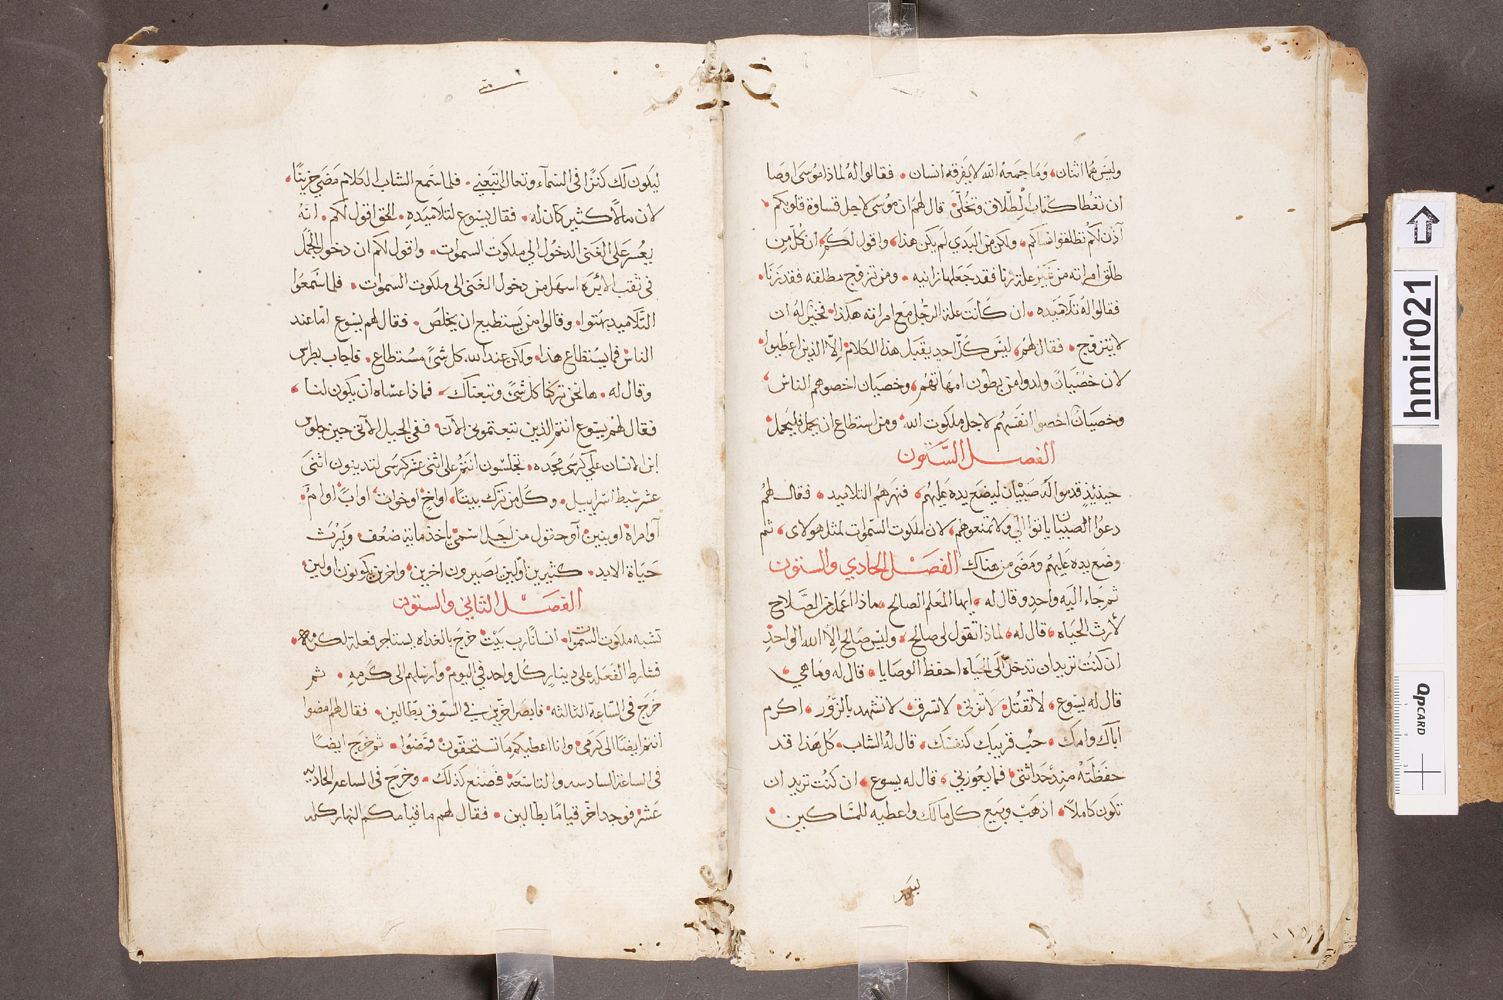 وليس هما اثنان وما جمعه الله لا يفرقه انسان فقالوا له لماذا موسى اوصا
ان نعطا كتاب الطلاق وتخلى قال لهم ان موسى لاجل قساوة قلوبكم
آذن لكم تطلقوا نساكم ولكن من البدي لم يكن هذا واقول لكم ان كل من
طلق امراته من غير علة زنا فقد جعلها زانيه ومن تزوج مطلقه فقد زنا
فقالوا له تلاميذه ان كانت علة الرجل مع امراته هكذا فخير له ان
لا يتزوج فقال لهم ليس كل احد يقبل هذا الكلام الا الذين اعطيوا
لان خصيان ولدوا من بطون امهاتهم وخصيان اخصوهم الناس
وخصيان اخصوا انفسهم لاجل ملكوت الله ومن استطاع ان يحمل فليحمل
الفصل الستون
حينيذٍ قدموا له صبيان ليضع يده عليهم فنهرهم التلاميد فقال لهم
دعوا الصبيان ياتوا الي ولا تمنعوهم لان ملكوت السموات لمثل هولاى ثم
وضع يده عليهم ومضى من هناك الفصل الحادي والستون
ثم جاء اليه واحد وقال له ايها المعلم الصالح ماذا اعمل من الصلاح
لأرث الحياه قال له لماذا تقول لي صالح وليس صالح الا الله الواحد
ان كنت تريد ان تدخل الى الحياة احفظ الوصايا قال له وما هي
قال له يسوع لا تقتل لا تزني لا تسرق لا تشهد بالزور اكرم
اباك وامك حب قريبك كنفسك قال له الشاب كل هذا قد
حفظته منذ حداثتي فما يعوزني قال له يسوع ان كنت تريد ان
تكون كاملاً اذهب وبيع كل مالك واعطيه للمساكين
ليكون لك كنزًا في السماء وتعال اتبعني فلما سمع الشاب الكلام مضى حزينًا
لان مالاً كثير كان له فقال يسوع لتلاميده الحق اقول لكم انه
يعسر على الغنى الدخول الى ملكوت السموات واقول لكم ان دخول الجمل
في ثقب الابره اسهل من دخول الغنى الى ملكوت السموات فلما سمعوا
التلاميد بهتوا وقالوا من يستطيع ان يخلص فقال لهم يسوع اما عند
الناس فما يستطاع هذا ولكن عند الله كل شي مستطاع فاجاب بطرس
وقال له ها نحن تركنا كل شي وتبعناك فماذا عساه ان يكون لنا
فقال لهم يسوع انتم الذين تبعتموني الآن ففي الجيل الآتي حين يجلس
ابن الانسان على كرسي مجده تجلسون انتم على اثنى عشر كرسي لتدينون اثنى
عشر سبط اسراييل وكل من ترك بيتًا او اخٍ او اخوات او ابً او امً
او امراة او بنين او حقول من اجل اسمي ياخذ ماية ضعف ويرث
حياة الابد كثيرين اولين يصيرون اخرين واخرين يكونون اولين
الفصل الثاني والستون
تشبه ملكوت السموات انسانًا رب بيت خرج بالغداه يستاجر فعلة لكرمه
فشارط الفعله على دينار كل واحد في اليوم وارسلهم الى كرمه ثم
خرج في الساعة الثالثه فابصر اخرين في السوق بطالين فقال لهم امضوا
انتم ايضًا الى كرمي وانا اعطيكم ما تستحقون فمضوا ثم خرج ايضًا
في الساعة السادسه والتاسعة فصنع كذلك وخرج في الساعه الحاديه
عشر فوجد اخر قيامًا بطالين فقال لهم ما قيامكم النهار كله
hmir021
QPCARD